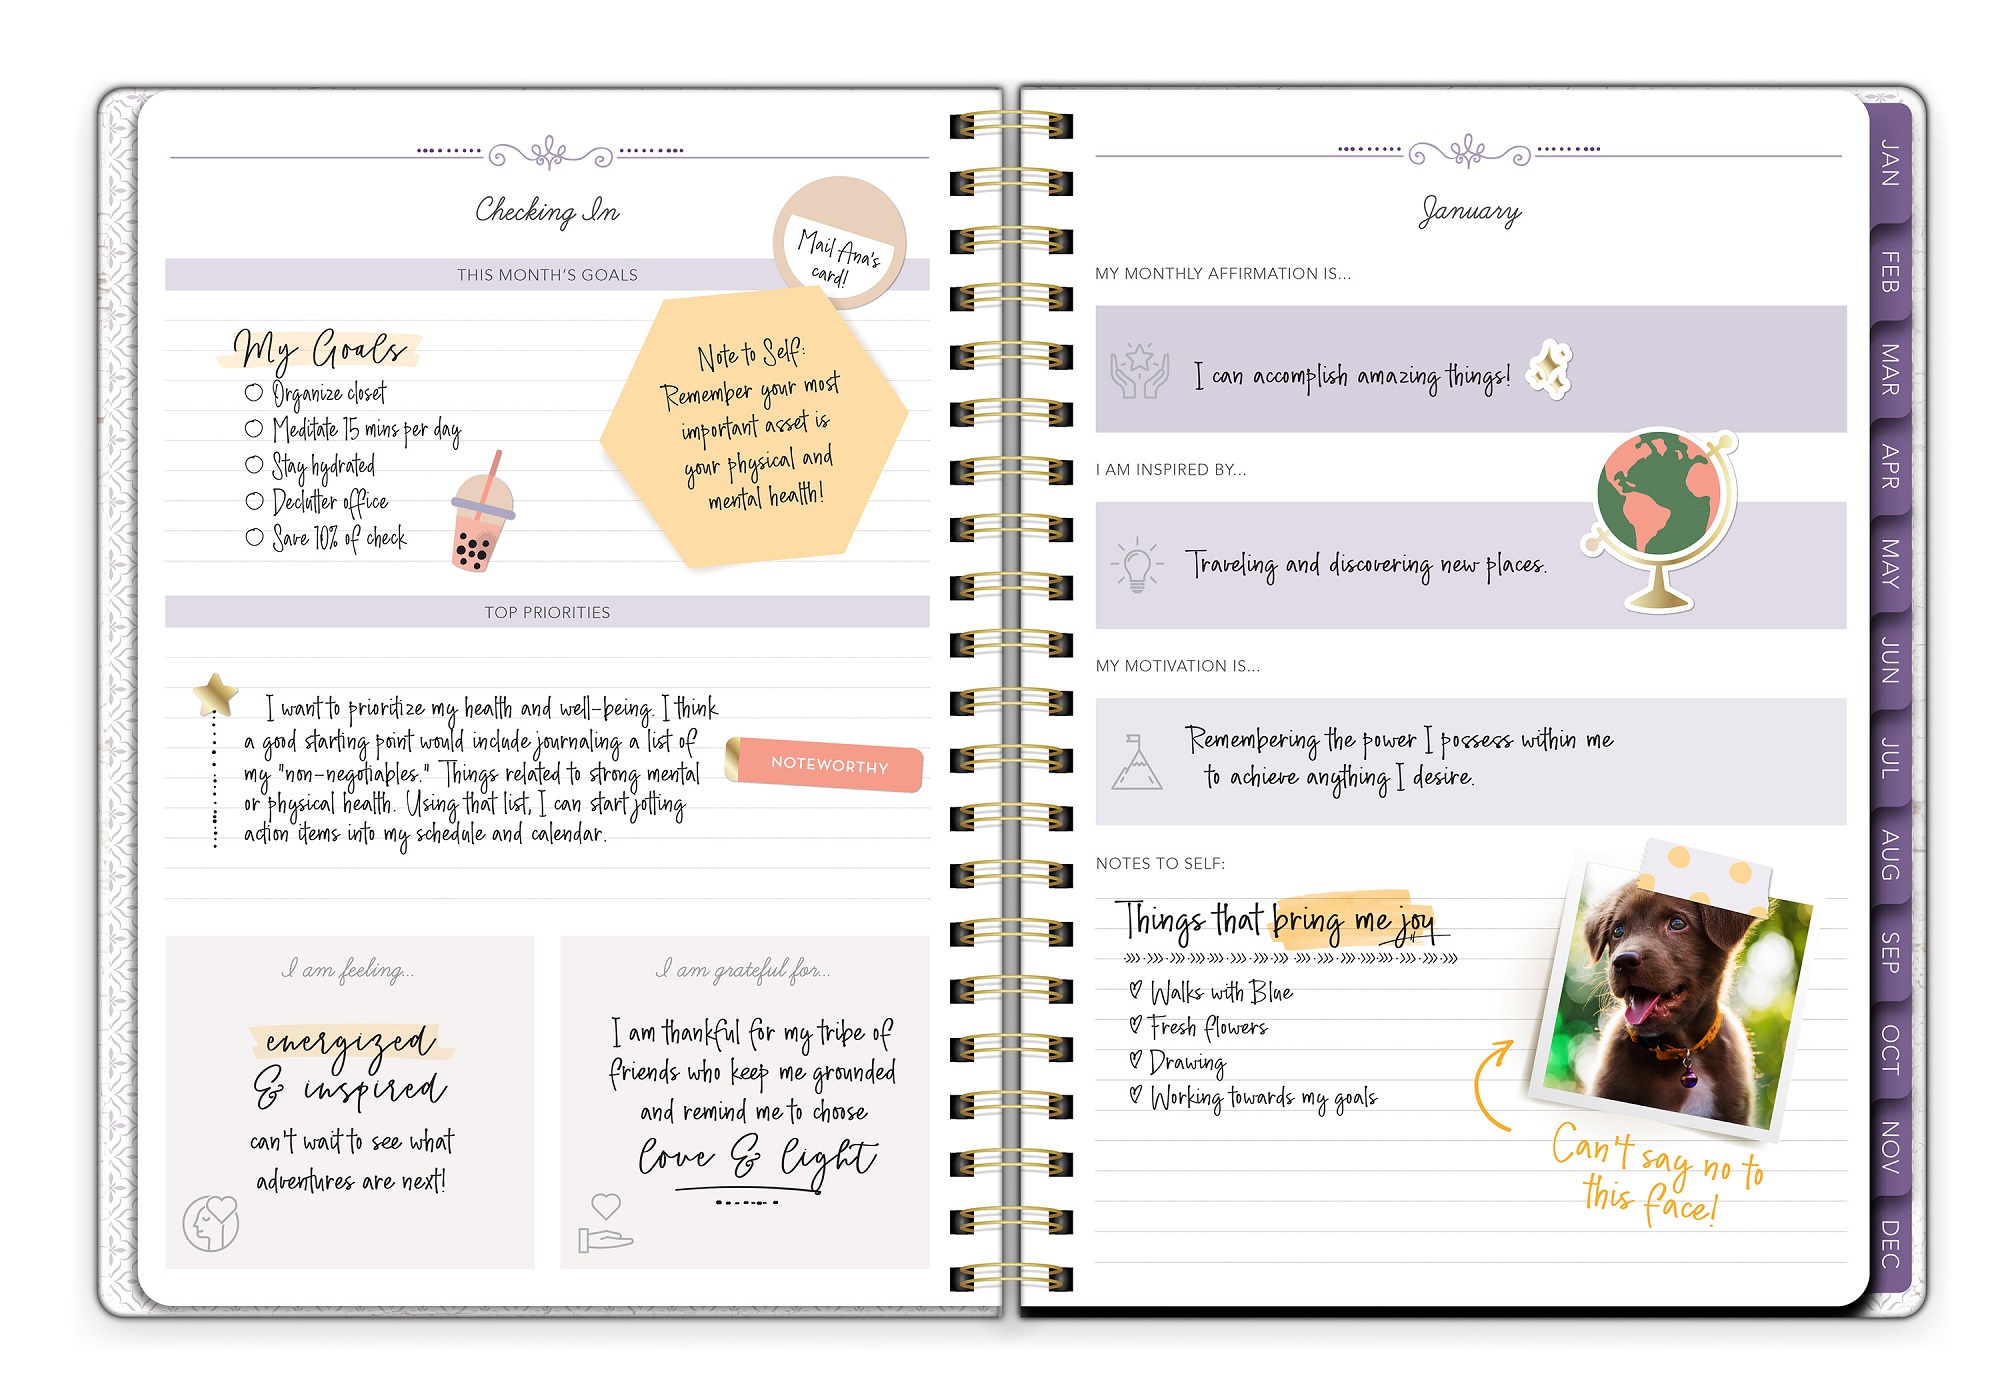 Checking In
THIS MONTH'S GOALS
Mail Ana's
card!
My Goals
Organize closet
Meditate 15 mins per day
Stay hydrated
Declutter office
Save 10% of check
Note to Self:
Remember your most
important asset is
your physical and
mental health!
TOP PRIORITIES
I want to prioritize my health and well-being. I think
a good starting point would include journaling a list of
my "non-negotiables." Things related to strong mental
or physical health. Using that list, I can start jotting
action items into my schedule and calendar.
NOTEWORTHY
I am feeling...
energized
& inspired
can't wait to see what
adventures are next!
I am grateful for...
I am thankful for my tribe of
friends who keep me grounded
and remind me to choose
love & light
January
MY MONTHLY AFFIRMATION IS...
I can accomplish amazing things!
I AM INSPIRED BY...
Traveling and discovering new places.
MY MOTIVATION IS...
Remembering the power I possess within me
to achieve anything I desire.
NOTES TO SELF:
Things that bring me joy
Walks with Blue
Fresh flowers
Drawing
Working towards my goals
Can't say no to
this face!
JAN
FEB
MAR
APR
MAY
JUN
JUL
AUG
SEP
OCT
NOV
DEC